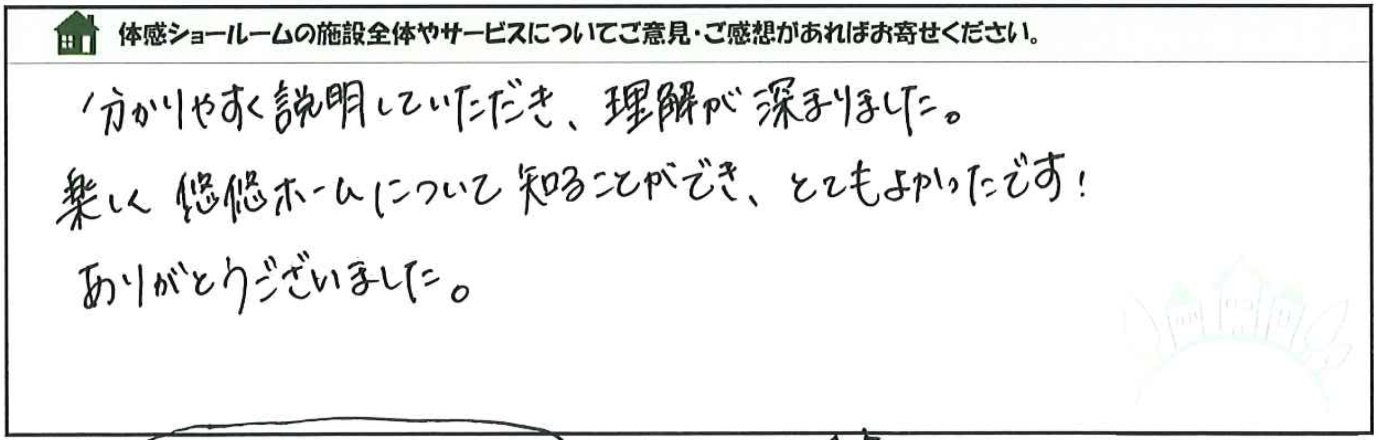 体感ショールームの施設全体やサービスについてご意見・ご感想があればお寄せください。
分かりやすく説明していただき、理解が深まりました。
楽しく悠悠ホームについて知ることができ、とてもよかったです!
ありがとうございました。